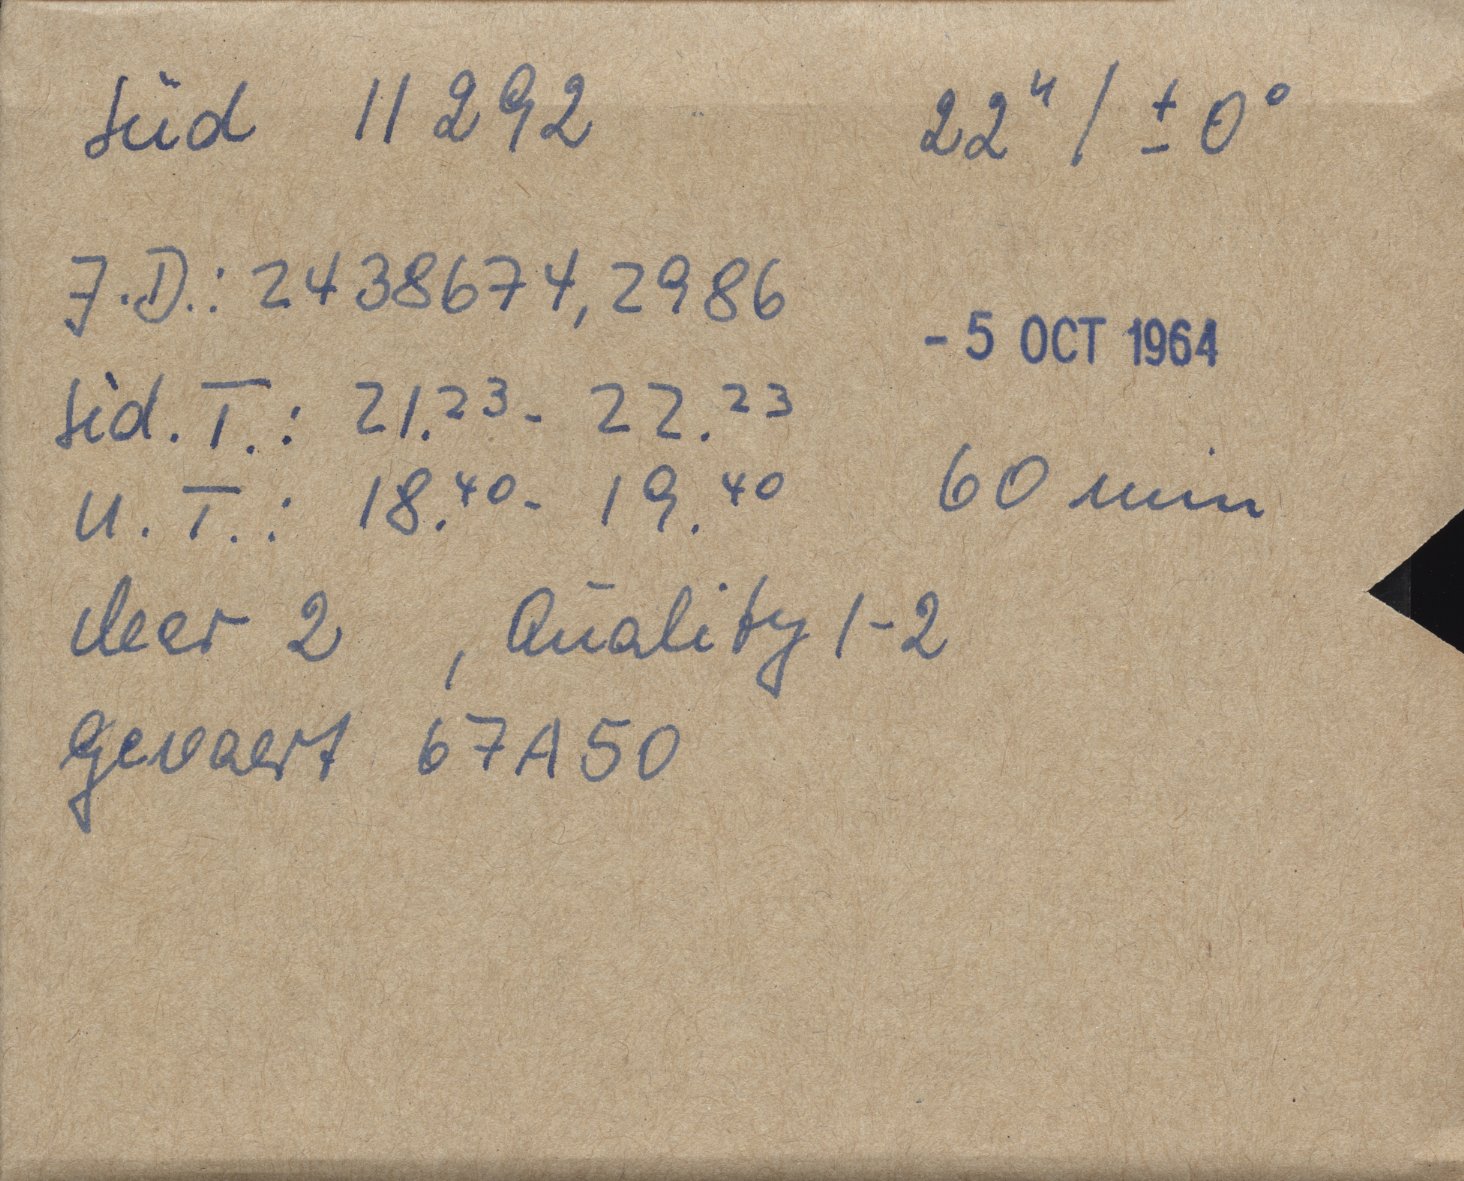 Süd 11292 22ʰ / ± 0°
J.D.: 2438674,2986
- 5 OCT 1964
Sid. T.: 21.²³ - 22.²³
U. T.: 18.⁴⁰ - 19.⁴⁰ 60 min
clear 2 , Quality 1-2
Gevaert 67A50